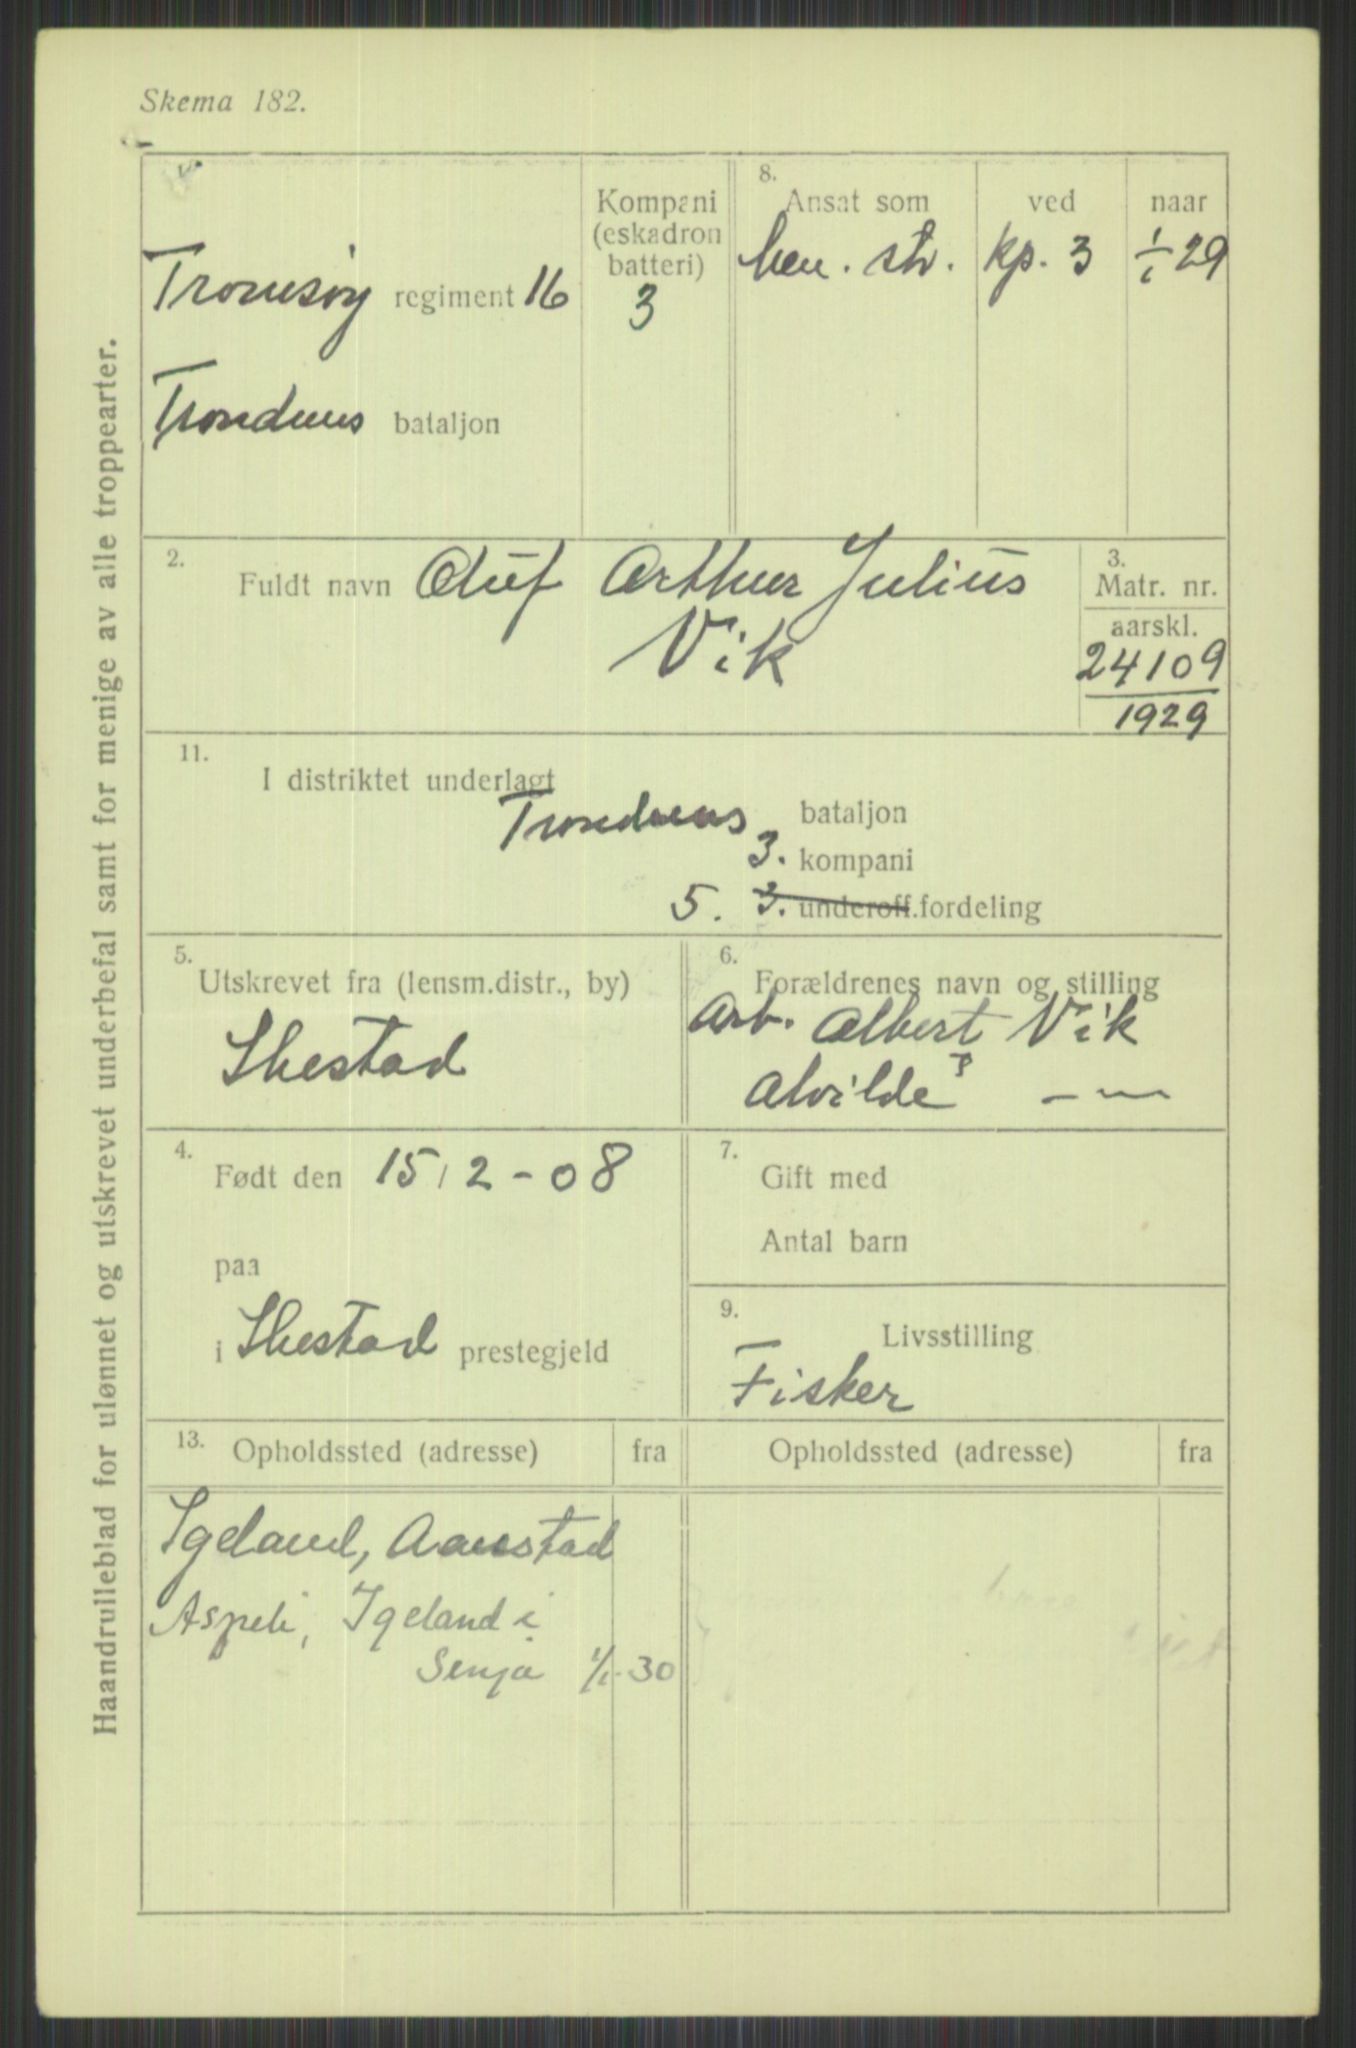 Skema 182.
Haandrulleblad for ulønnet og utskrevet underbefal samt for menige av alle troppearter.
Tromsøy regiment 16
Kompani
(eskadron
batteri)
3
Trondenes bataljon
8.
Ansat som ved naar
kp. 3 1/1 29
2.
Fuldt navn Oluf Arthur Julius
Vik
3.
Matr. nr.
aarskl.
24109
1929
11.
I distriktet underlagt
Trondenes bataljon
3. kompani
5. 3. underoff.fordeling
5.
Utskrevet fra (lensm.distr., by)
Ibestad
6.
Forældrenes navn og stilling
Arb. Albert Vik
Alvilde — " —
4.
Født den 15/2-08
paa
i Ibestad prestegjeld
7.
Gift med
Antal barn
9.
Livsstilling
Fisker
13. Opholdssted (adresse) fra
Opholdssted (adresse) fra
Igeland, Aanstad
Aspeli, Igeland i
Senja 1/1-30